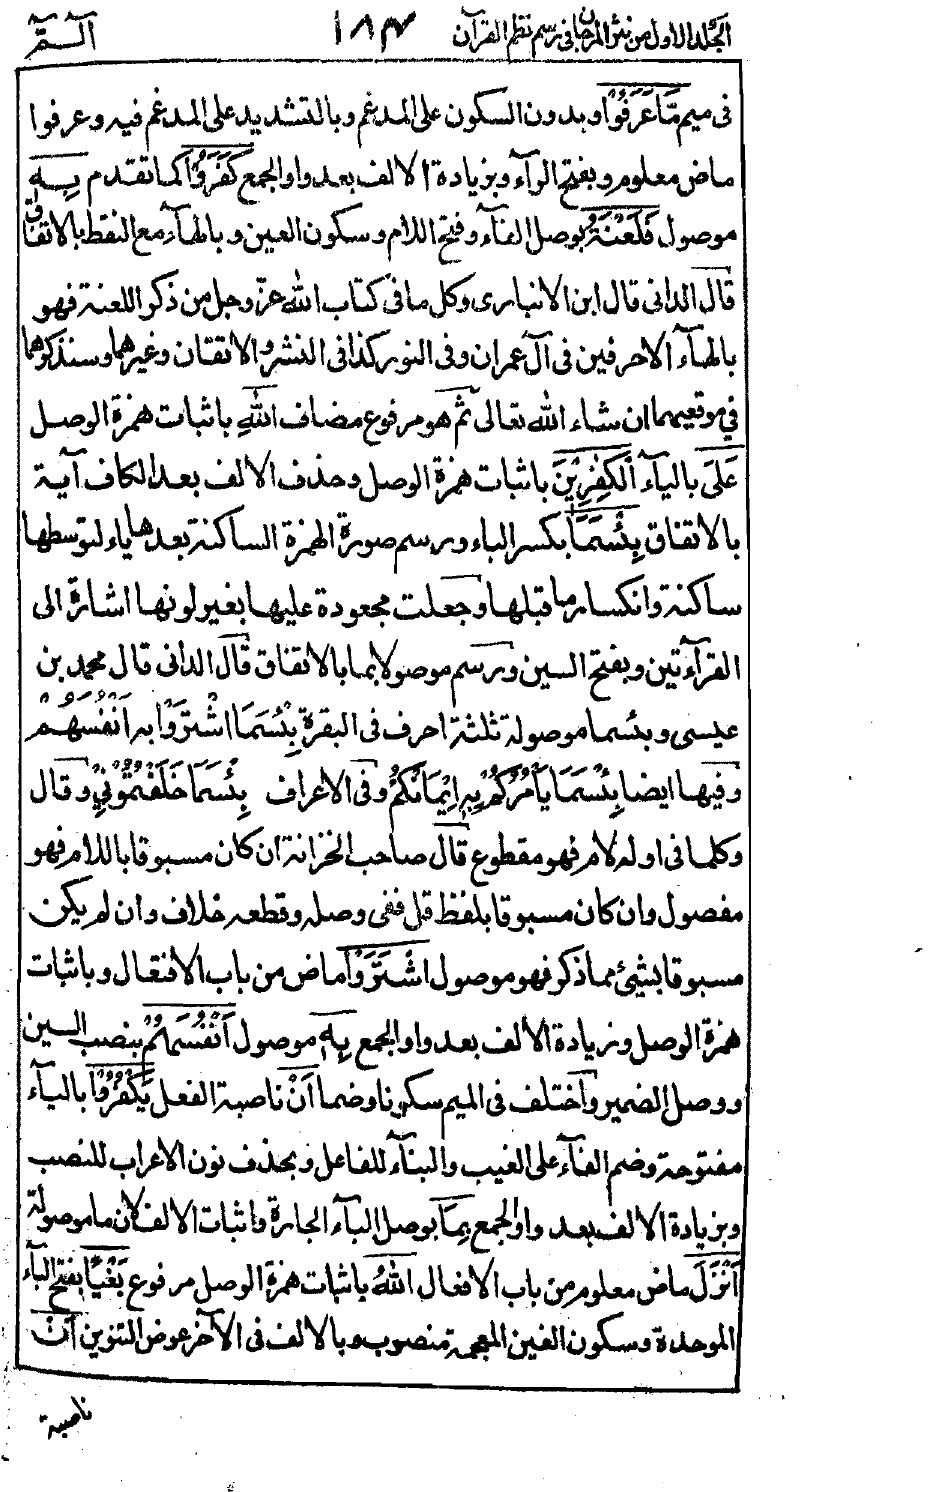 الجلد الاول من نثر المرجان في رسم نظم القرآن
١٨٣
الٓـمّٓ
فى ميم مَّا عَرَفُوْا وبدون السكون على المدغم وبالتشديد على المدغم فيه وعرفوا
ماض معلوم وبفتح الرآء وبزيادة الالف بعد واو الجمع كَفَرُوْا كما تقدم بِهٖ
موصول فَلَعْنَةُ بوصل الفآء وفتح اللام وسكون العين وبالهآء مع النقط بالاتفاق
قال الدانى قال ابن الانبارى وكل ما فى كتاب الله عزّ وجل من ذكر اللعنة فهو
بالهآء الا حرفين فى آل عمران وفى النور كذا فى النشر والاتقان وغيرهما وسنذكرهما
في موقعيهما ان شاء الله تعالى ثم هو مرفوع مضاف اللهِ باثبات همزة الوصل
عَلَى بالياء الْكٰفِرِيْنَ باثبات همزة الوصل وحذف الالف بعد الكاف آية
بالاتفاق بِئْسَمَا بكسر الباء ورسم صورة الهمزة الساكنة بعدها ياء لتوسطها
ساكنة وانكسار ما قبلها وجعلت مجعودة عليها بغير لونها اشارة الى
القرآءتين وبفتح السين ورسم موصولا بما بالاتفاق قال الدانى قال محمد بن
عيسى وبئسما موصولة ثلثة احرف فى البقرة بِئْسَمَا اشْتَرَوْا بِهٖ اَنْفُسَهُمْ
وفيها ايضا بِئْسَمَا يَأْمُرُكُمْ بِهٖ اِيْمَانُكُمْ وفى الاعراف بِئْسَمَا خَلَفْتُمُوْنِيْ وقال
وكلما فى اوله لام فهو مقطوع قال صاحب الخزانة ان كان مسبوقا باللام فهو
مفصول وان كان مسبوقا بلفظ قل ففى وصله وقطعه خلاف وان لم يكن
مسبوقا بشيئ مما ذكر فهو موصول اشْتَرَوْا ماض من باب الافتعال وباثبات
همزة الوصل وزيادة الالف بعد واو الجمع بِهٖ موصول اَنْفُسَهُمْ بنصب السين
ووصل الضمير واختلف فى الميم سكونا وضما اَنْ ناصبة الفعل يَّكْفُرُوْا بالياء
مفتوحة وضم الفآء على الغيب والبنآء للفاعل وبحذف نون الاعراب للنصب
وبزيادة الالف بعد واو الجمع بِمَا بوصل البآء الجارة واثبات الالف لان ما موصولة
اَنْزَلَ ماض معلوم من باب الافعال اللهُ باثبات همزة الوصل مرفوع بَغْيًا بفتح الباء
الموحدة وسكون الغين المعجمة منصوب وبالالف فى الآخر عوض التنوين اَنْ
ناصبة